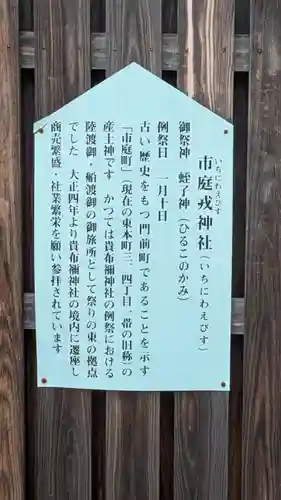 いちにわえびす
市庭戎神社（いちにわえびす）
御祭神　蛭子神（ひるこのかみ）
例祭日　一月十日
古い歴史をもつ門前町であることを示す
「市庭町」（現在の東本町三、四丁目一帯の旧称）の
産土神です　かつては貴布禰神社の例祭における
陸渡御・船渡御の御旅所として祭りの東の拠点
でした　大正四年より貴布禰神社の境内に遷座し
商売繁盛・社業繁栄を願い参拝されています